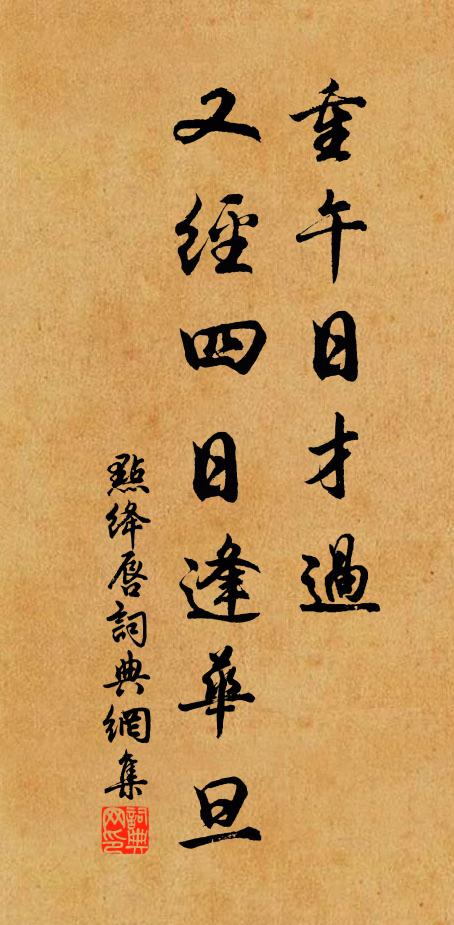 重午日才過
又經四日逢華旦
點絳唇詞典網集
詞典网印